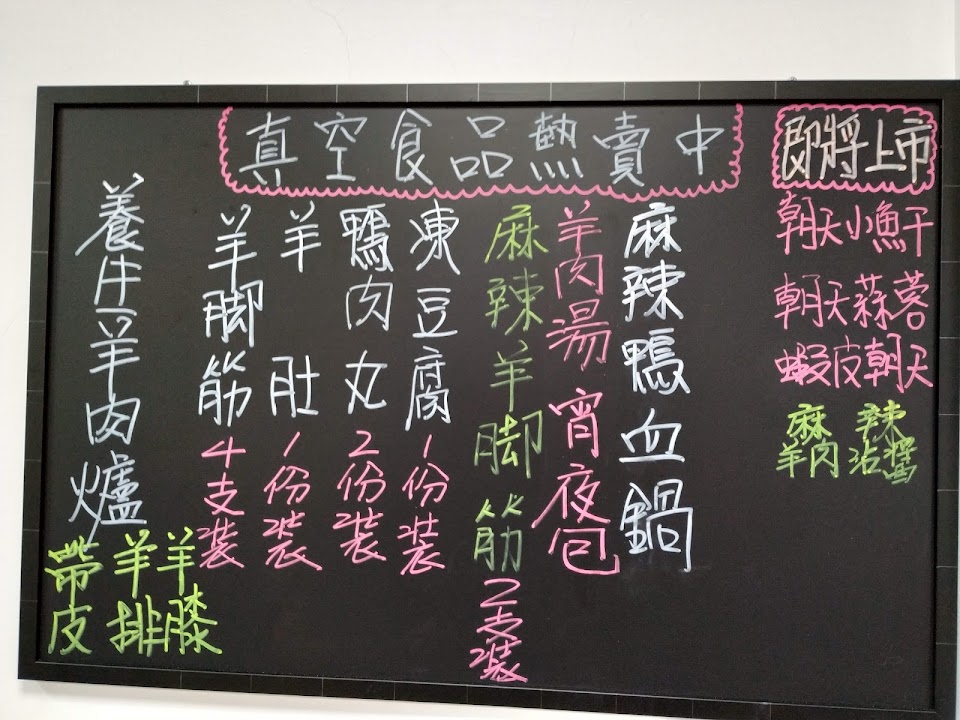 真空食品熱賣中
即將上市
麻辣鴨血鍋
羊肉湯 宵夜包
麻辣羊脚筋 2支裝
凍豆腐 1份裝
鴨肉丸 2份裝
羊肚 1份裝
羊脚筋 4支裝
養生羊肉爐
帶皮 羊排 羊膝
朝天小魚干
朝天蒜蓉
蝦皮朝天
麻辣
羊肉沾醬